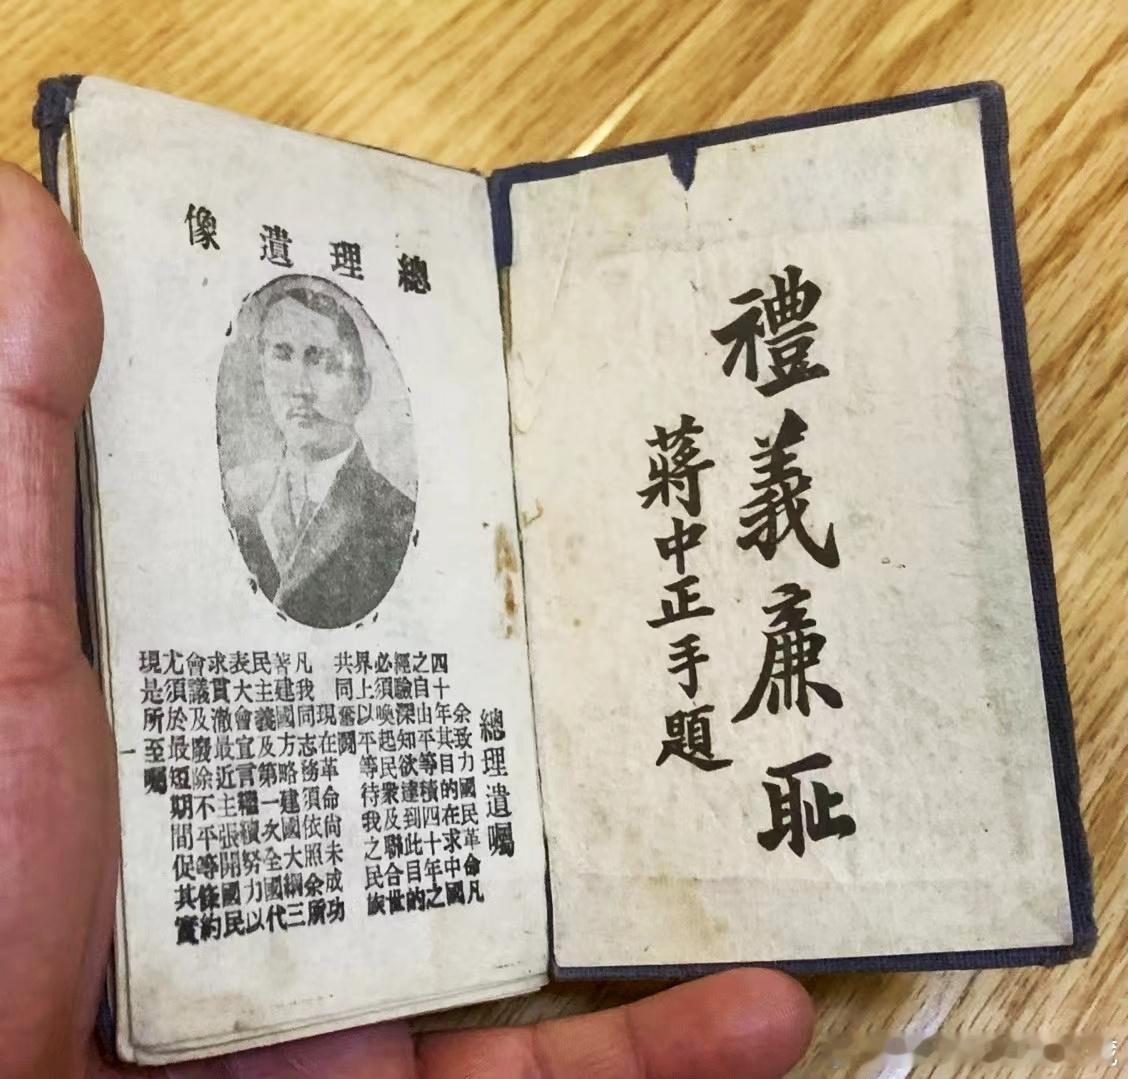 禮義廉恥
蔣中正手題
總理遺像
總理遺囑
余致力國民革命凡
四十年其目的在求中國
之自由平等積四十年之
經驗深知欲達到此目的
必須喚起民衆及聯合世
界上以平等待我之民族
共同奮鬪
現在革命尚未成功
凡我同志務須依照余所
著建國方略建國大綱三
民主義及第一次全國代
表大會宣言繼續努力以
求貫澈最近主張開國民
會議及廢除不平等條約
尤須於最短期間促其實
現是所至囑
一